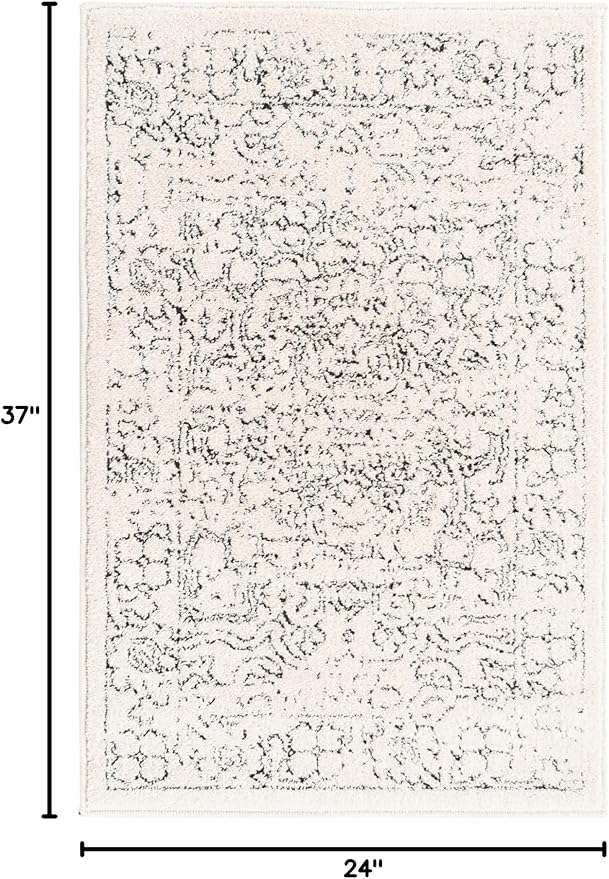 37"
24"